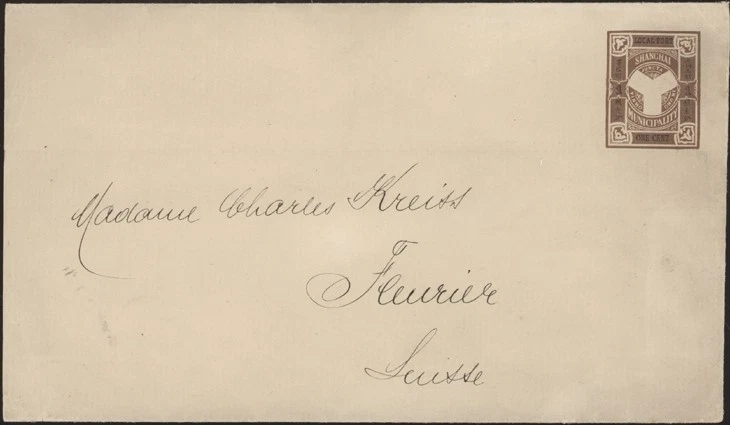 LOCAL POST
SHANGHAI
MUNICIPALITY
ONE CENT
Madame Charles Kreiss
Fleurier
Suisse